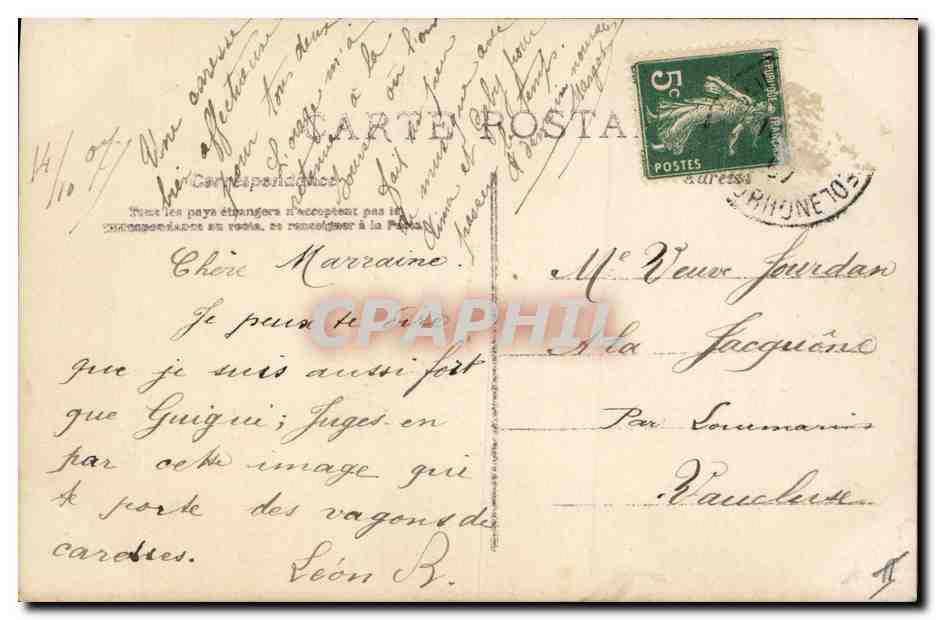 14/10 07
Une caresse
bien affectueuse
pour tous deux
L'orage m'a
retenue à la
où l'on
fait peu
Je mande que
Anna et Gaby pour
passer temps.
CARTE POSTALE
Correspondance
Tous les pays étrangers n'acceptent pas la
correspondance au recto, se renseigner à la Poste
Adresse
5c
REPUBLIQUE FRANÇAISE
POSTES
Chère Marraine.
Je peux te dire
que je suis aussi fort
que Guigui; Juges-en
par cette image qui
te porte des vagons de
caresses.
Léon R.
Me Veuve Jourdan
A la Jacquône
Par Lourmarin
Vaucluse
CPAPHIL